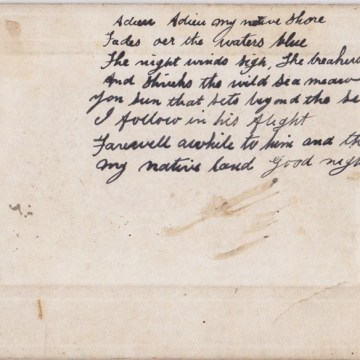 Adieu Adieu my native Shore
Fades oer the waters blue
The night winds sigh, The breakers
And Shrieks the wild Sea meaw
Yon Sun that Sets beyond the
I follow in his flight
Farewell awhile to him and
my native land Good